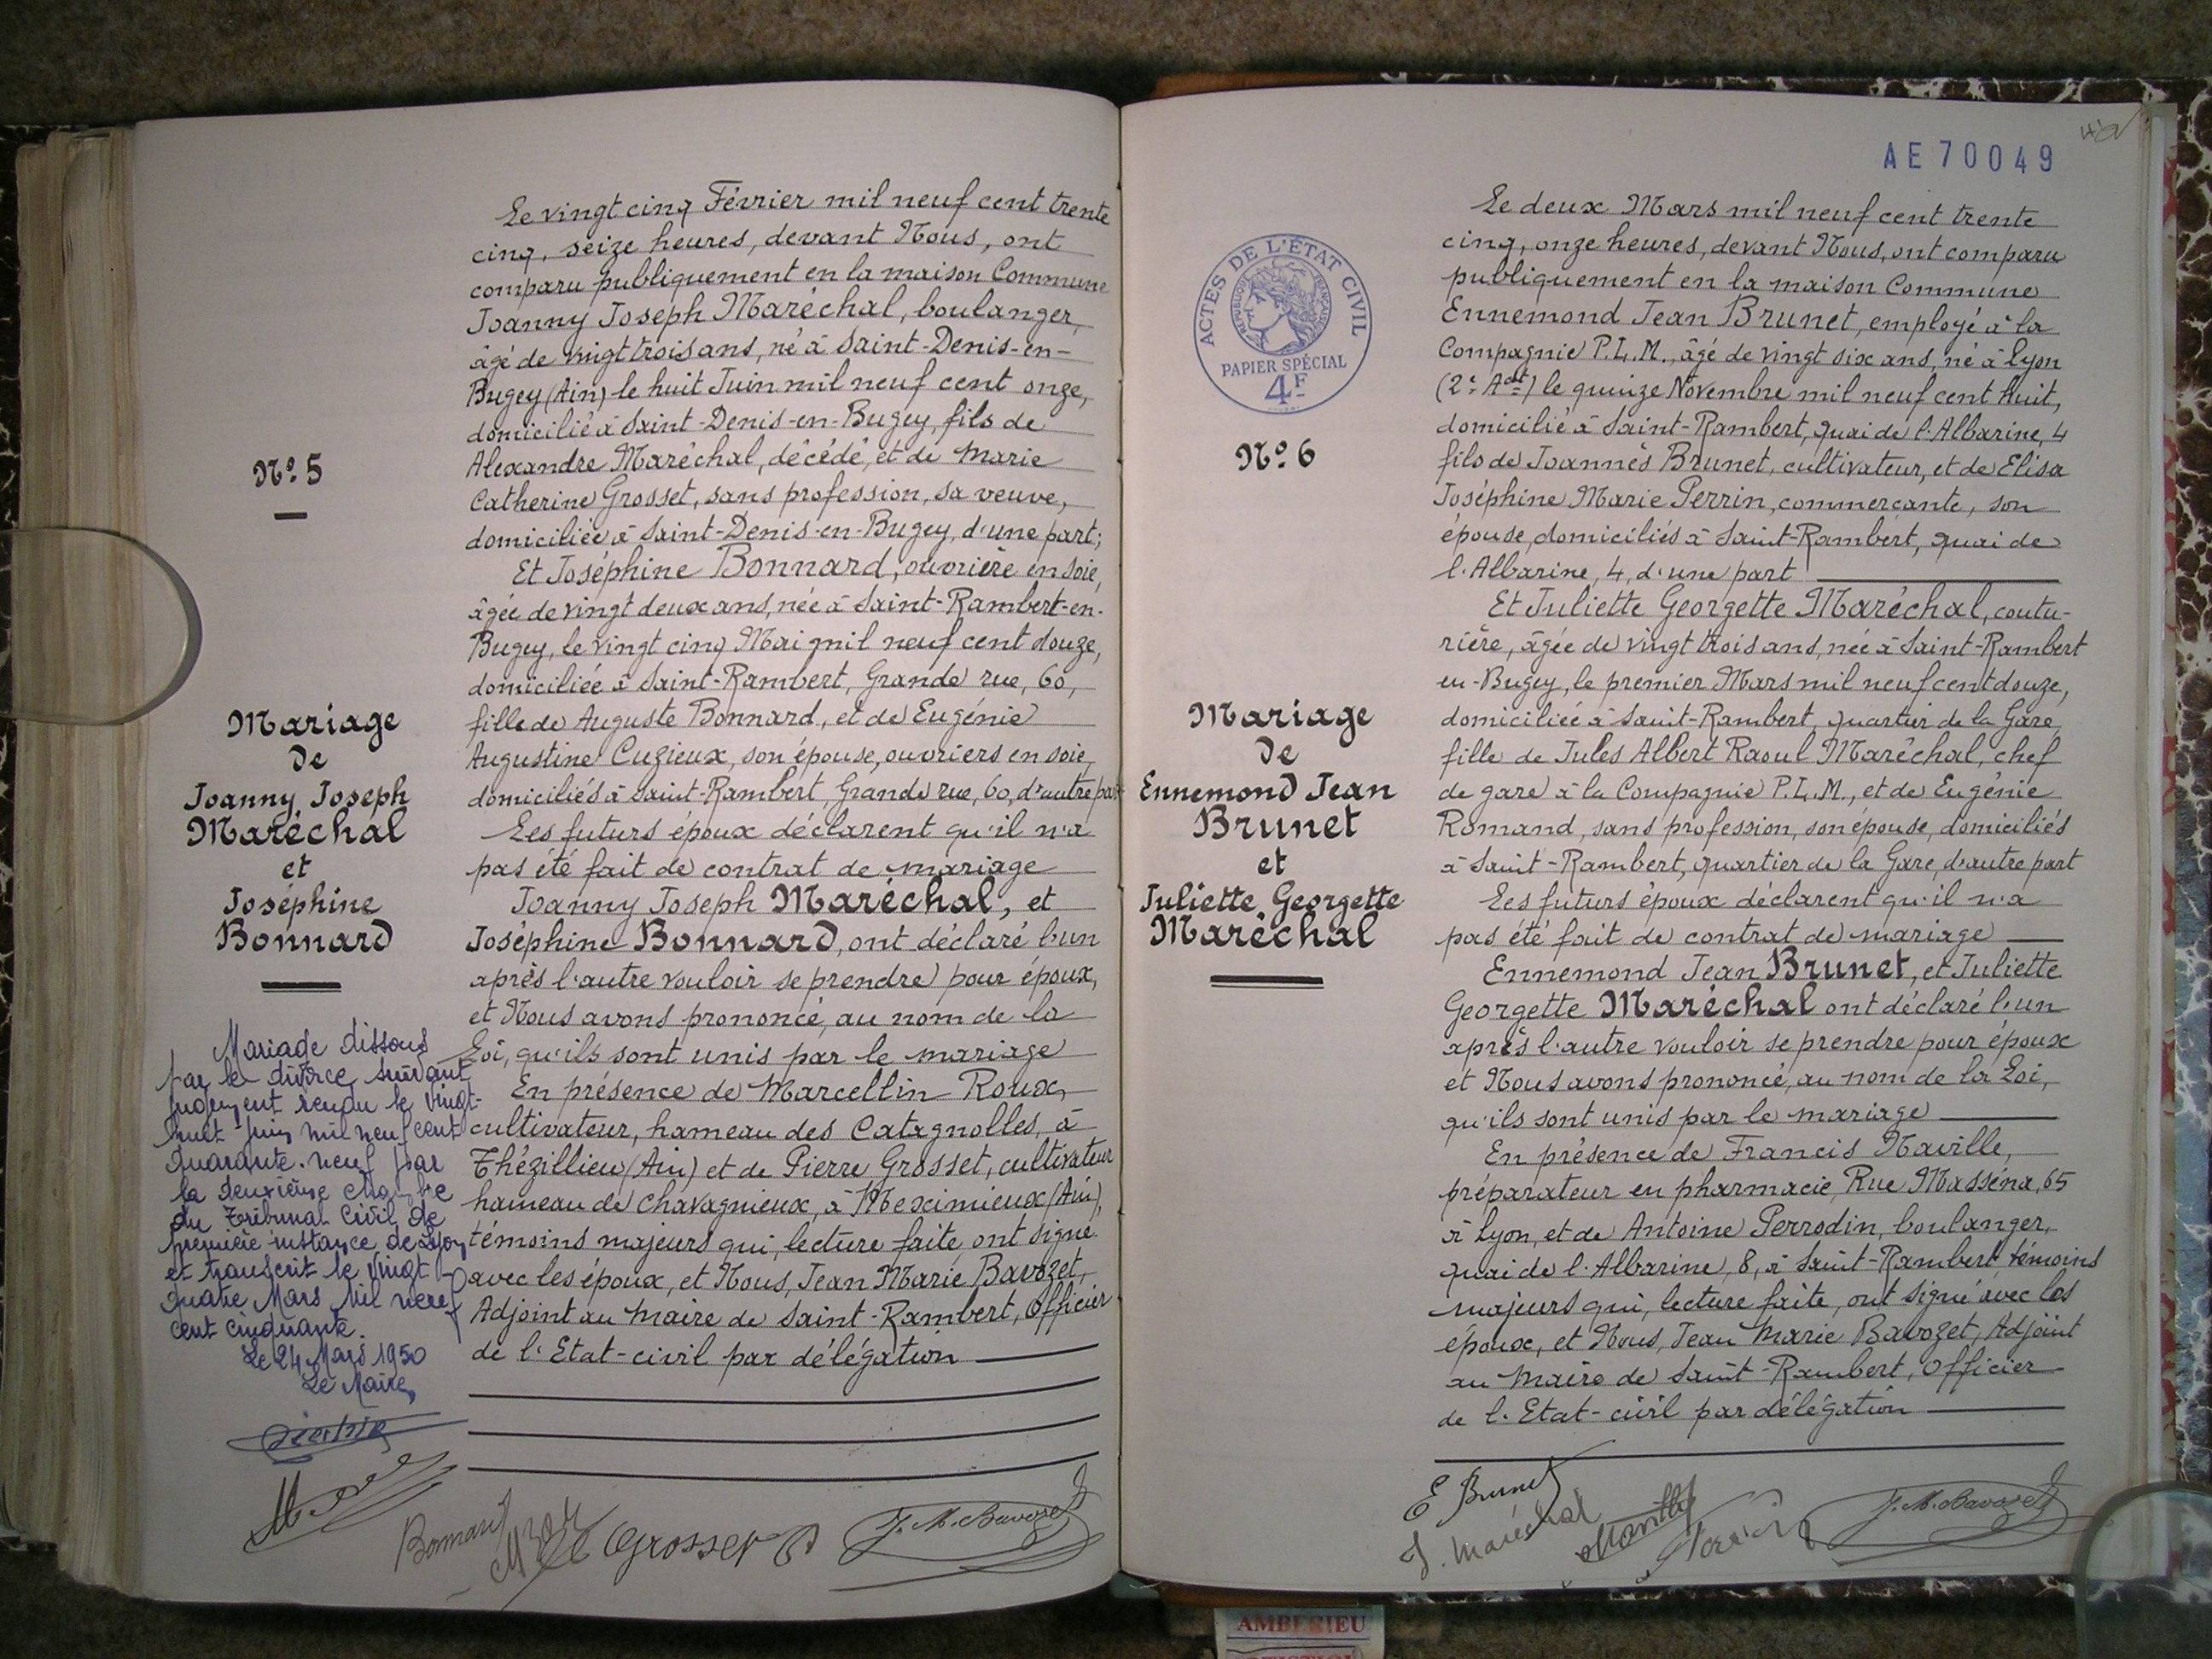 Le vingt cinq Février mil neuf cent trente
cinq, seize heures, devant Nous, ont
comparu publiquement en la maison Commune
Joanny Joseph Maréchal, boulanger,
âgé de vingt trois ans, né à Saint-Denis-en-
Bugey (Ain) le huit Juin mil neuf cent onze,
domicilié à Saint-Denis-en-Bugey, fils de
Alexandre Maréchal, décédé, et de Marie
Catherine Grosset, sans profession, sa veuve,
domiciliée à Saint-Denis-en-Bugey, d'une part;
Et Joséphine Bonnard, ouvrière en soie,
âgée de vingt deux ans, née à Saint-Rambert-en-
Bugey, le vingt cinq Mai mil neuf cent douze,
domiciliée à Saint-Rambert, Grande rue, 60,
fille de Auguste Bonnard, et de Eugénie
Augustine Cuzieux, son épouse, ouvriers en soie,
domiciliés à Saint-Rambert, Grande rue, 60, d'autre part
Les futurs époux déclarent qu'il n'a
pas été fait de contrat de mariage
Joanny Joseph Maréchal, et
Joséphine Bonnard, ont déclaré l'un
après l'autre vouloir se prendre pour époux,
et Nous avons prononcé, au nom de la
Loi, qu'ils sont unis par le mariage
En présence de Marcellin Roux,
cultivateur, hameau des Catagnolles, à
Thézillieu (Ain) et de Pierre Grosset, cultivateur
hameau de Chavagnieux, à Meximieux (Ain),
témoins majeurs qui, lecture faite, ont signé
avec les époux, et Nous, Jean Marie Bavozet,
Adjoint au Maire de Saint-Rambert, Officier
de l'Etat-civil par délégation
No 5
Mariage
de
Joanny Joseph
Maréchal
et
Joséphine
Bonnard
Mariage dissous
par le divorce suivant
jugement rendu le vingt-
huit juin mil neuf cent
quarante-neuf par
la deuxième chambre
du Tribunal Civil de
première instance de Lyon
et transcrit le vingt-
quatre Mars mil neuf
cent cinquante.
Le 24 Mars 1950
Le Maire,
Bonnard
Grosset P
J. M. Bavozet
AE 70049
ACTES DE L'ÉTAT CIVIL
REPUBLIQUE FRANÇAISE
PAPIER SPÉCIAL
4F
No 6
Mariage
de
Ennemond Jean
Brunet
et
Juliette Georgette
Maréchal
Le deux Mars mil neuf cent trente
cinq, onze heures, devant Nous, ont comparu
publiquement en la maison Commune
Ennemond Jean Brunet, employé à la
Compagnie P.L.M., âgé de vingt six ans, né à Lyon
(2e Adt) le quinze Novembre mil neuf cent huit,
domicilié à Saint-Rambert, quai de l'Albarine, 4
fils de Joannès Brunet, cultivateur, et de Elisa
Joséphine Marie Perrin, commerçante, son
épouse, domiciliés à Saint-Rambert, quai de
l'Albarine, 4, d'une part
Et Juliette Georgette Maréchal, coutu-
rière, âgée de vingt trois ans, née à Saint-Rambert
en-Bugey, le premier Mars mil neuf cent douze,
domiciliée à Saint-Rambert, quartier de la Gare,
fille de Jules Albert Raoul Maréchal, chef
de gare à la Compagnie P.L.M., et de Eugénie
Romand, sans profession, son épouse, domiciliés
à Saint-Rambert, quartier de la Gare, d'autre part
Les futurs époux déclarent qu'il n'a
pas été fait de contrat de mariage
Ennemond Jean Brunet, et Juliette
Georgette Maréchal ont déclaré l'un
après l'autre vouloir se prendre pour époux
et Nous avons prononcé, au nom de la Loi,
qu'ils sont unis par le mariage
En présence de Francis Naville,
préparateur en pharmacie, Rue Masséna, 65
à Lyon, et de Antoine Perrodin, boulanger,
quai de l'Albarine, 8, à Saint-Rambert, témoins
majeurs qui, lecture faite, ont signé avec les
époux, et Nous, Jean Marie Bavozet, Adjoint
au Maire de Saint-Rambert, Officier
de l'Etat-civil par délégation
E Brunet
J. Maréchal
J. M. Bavozet
AMBERIEU